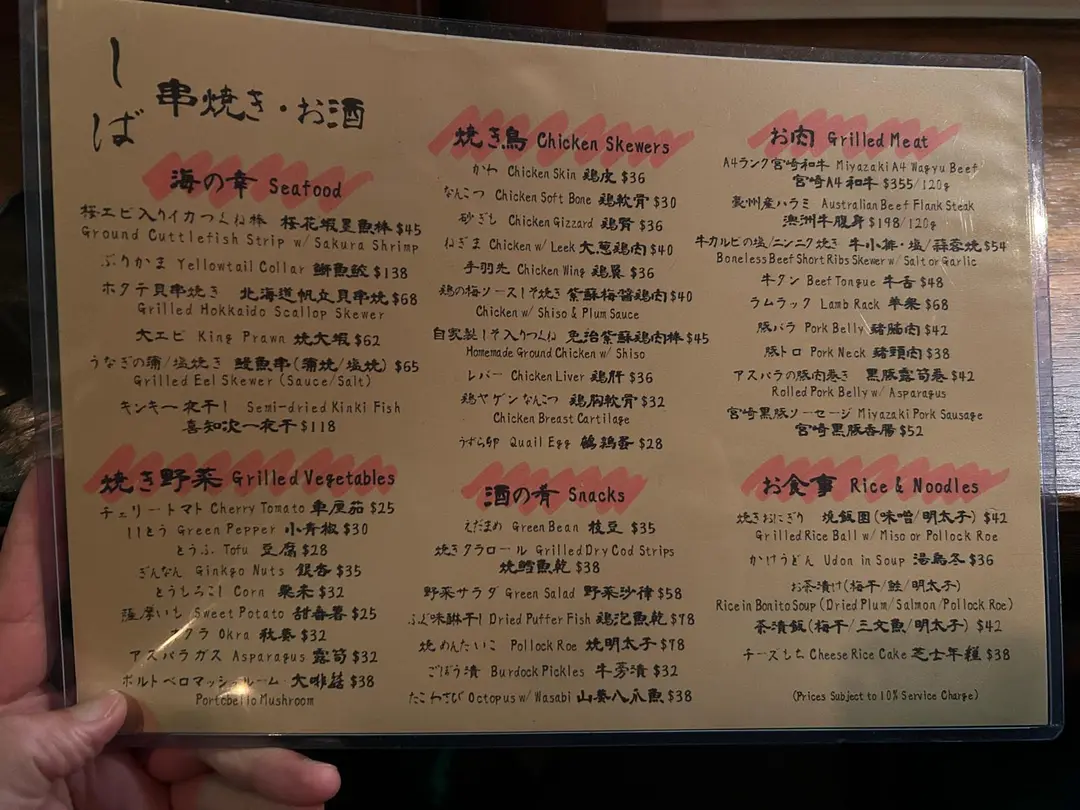 しば
串焼き・お酒
海の幸 Seafood
桜エビ入りイカつくね棒 桜花蝦墨魚棒 $45
Ground Cuttlefish Strip w/ Sakura Shrimp
ぶりかま Yellowtail Collar 鰤魚鮫 $138
ホタテ貝串焼き 北海道帆立貝串焼 $68
Grilled Hokkaido Scallop Skewer
大エビ King Prawn 焼大蝦 $62
うなぎの蒲/塩焼き 鰻魚串(蒲焼/塩焼) $65
Grilled Eel Skewer (Sauce/Salt)
キンキ一夜干し Semi-dried Kinki Fish
喜知次一夜干 $118
焼き野菜 Grilled Vegetables
チェリートマト Cherry Tomato 車厘茄 $25
ししとう Green Pepper 小青椒 $30
とうふ Tofu 豆腐 $28
ぎんなん Ginkgo Nuts 銀杏 $35
とうもろこし Corn 粟米 $32
薩摩いも Sweet Potato 甜番薯 $25
オクラ Okra 秋葵 $32
アスパラガス Asparagus 露筍 $32
ポルトベロマッシュルーム 大啡菇 $38
Portobello Mushroom
焼き鳥 Chicken Skewers
かわ Chicken Skin 鶏皮 $36
なんこつ Chicken Soft Bone 鶏軟骨 $30
砂ぎも Chicken Gizzard 鶏腎 $36
ねぎま Chicken w/ Leek 大葱鶏肉 $40
手羽先 Chicken Wing 鶏翼 $36
鶏の梅ソースしそ焼き 紫蘇梅醤鶏肉 $40
Chicken w/ Shiso & Plum Sauce
自家製しそ入りつくね 免治紫蘇鶏肉棒 $45
Homemade Ground Chicken w/ Shiso
レバー Chicken Liver 鶏肝 $36
鶏ヤゲンなんこつ 鶏胸軟骨 $32
Chicken Breast Cartilage
うずら卵 Quail Egg 鵪鶉蛋 $28
酒の肴 Snacks
えだまめ Green Bean 枝豆 $35
焼きタラロール Grilled Dry Cod Strips
焼鱈魚乾 $38
野菜サラダ Green Salad 野菜沙律 $58
ふぐ味醂干し Dried Puffer Fish 鶏泡魚乾 $78
焼めんたいこ Pollock Roe 焼明太子 $78
ごぼう漬 Burdock Pickles 牛蒡漬 $32
たこわさび Octopus w/ Wasabi 山葵八爪魚 $38
お肉 Grilled Meat
A4ランク宮崎和牛 Miyazaki A4 Wagyu Beef
宮崎A4和牛 $355/120g
豪州産ハラミ Australian Beef Flank Steak
澳洲牛腹身 $198/120g
牛カルビの塩/ニンニク焼き 牛小排・塩/蒜蓉焼 $54
Boneless Beef Short Ribs Skewer w/ Salt or Garlic
牛タン Beef Tongue 牛舌 $48
ラムラック Lamb Rack 羊架 $68
豚バラ Pork Belly 豬腩肉 $42
豚トロ Pork Neck 豬頸肉 $38
アスパラの豚肉巻き 黒豚露筍巻 $42
Rolled Pork Belly w/ Asparagus
宮崎黒豚ソーセージ Miyazaki Pork Sausage
宮崎黒豚香腸 $52
お食事 Rice & Noodles
焼きおにぎり 焼飯団(味噌/明太子) $42
Grilled Rice Ball w/ Miso or Pollock Roe
かけうどん Udon in Soup 湯烏冬 $36
お茶漬け(梅干/鮭/明太子)
Rice in Bonito Soup (Dried Plum/Salmon/Pollock Roe)
茶漬飯(梅干/三文魚/明太子) $42
チーズもち Cheese Rice Cake 芝士年糕 $38
(Prices Subject to 10% Service Charge)